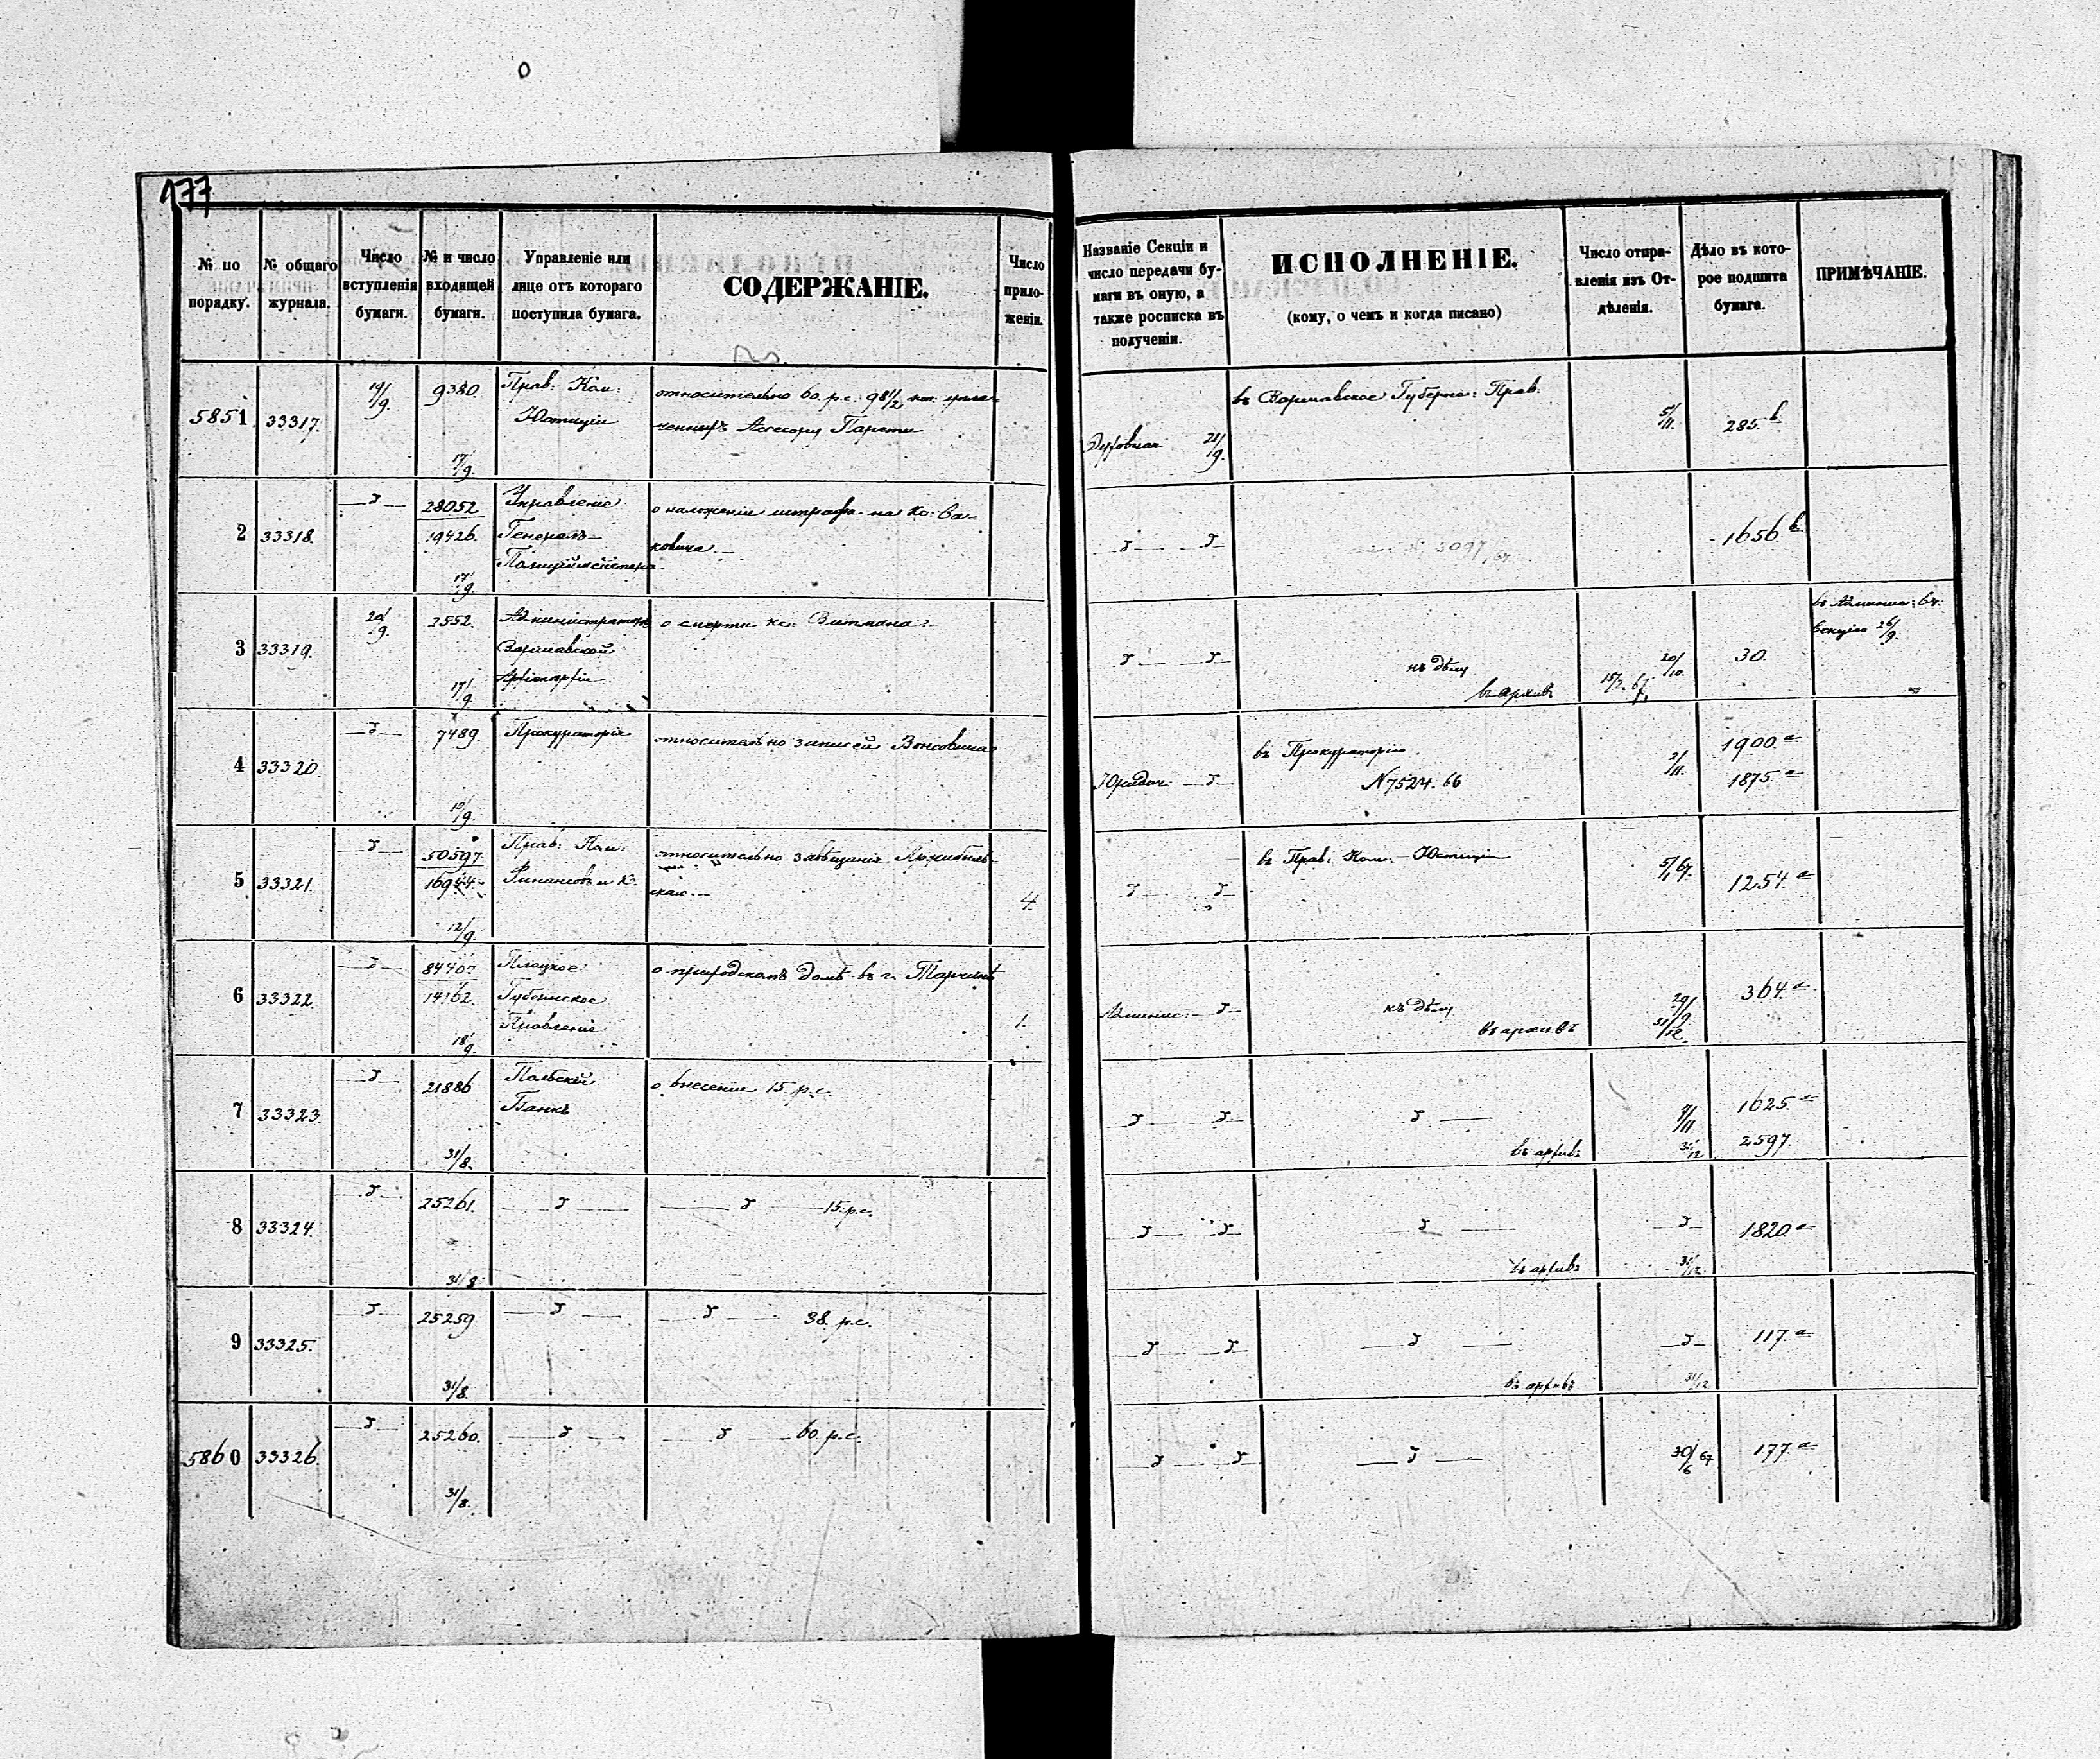 177
№ по порядку.
№ общаго журнала.
Число вступленія бумаги.
№ и число входящей бумаги.
Управленіе или лице отъ котораго поступила бумага.
СОДЕРЖАНІЕ.
Число приложеній.
Названіе Секціи и число передачи бумаги въ оную, а также росписка въ полученіи.
ИСПОЛНЕНІЕ.
(кому, о чемъ и когда писано)
Число отправленія изъ Отдѣленія.
Дѣло въ которое подшита бумага.
ПРИМѢЧАНІЕ.
5851 33317. 19/9. 9380. 17/9.
Прав: Ком: Юстиціи
относительно 60. р. с. 98 1/2 коп:
Ассесору
Духовная 21/9.
въ Варшавское Губерн: Прав.
5/11. 285. b.
2 33318. 28052 19426. 17/9.
Управленіе Генералъ-Полицiймейстера
о наложеніи штрафа на кс:
№ 3097/67
1656. b.
3 33319. 20/9. 2552. 17/9.
Администраторъ Варшавской Архіепархіи
о смерти кс: Витмана
къ дѣлу 20/10. 30.
въ архивъ 15/2. 67.
въ Админис:
Секцію 26/9.
4 33320. 7489. 10/9.
Прокураторія
относительно записей
Юридич.
въ Прокураторію
N 7524. 66
2/11. 1900. a
1875. a
5 33321. 50597 16944. 12/9.
Прав: Ком: Финансовъ и К.
относительно завѣщанія
4.
въ Прав: Ком: Юстиціи
5/1 67. 1254. a
6 33322. 84407 14162. 18/9.
Плоцкое Губернское Правленіе
о приходскомъ домѣ въ г. Тарчинѣ
1.
Админис:
къ дѣлу 29/9 364. a
въ архивъ 31/12.
7 33323. 21886 31/8.
Польскій Банкъ
о внесеніи 15. р. с.
9/11. 1625. a
въ архивъ 31/12 2597.
8 33324. 25261. 31/8.
15. р. с.
1820. a
въ архивъ 31/12.
9 33325. 25259 31/8.
38. р. с.
117. a
въ архивъ 31/12
5860 33326. 25260. 31/8.
60. р. с.
30/6 67 177. a